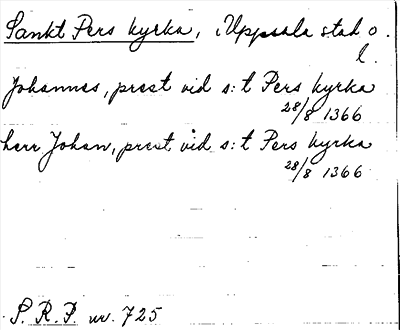 Sankt Pers kyrka, Uppsala stad o.
l.
Johannes, prest vid s:t Pers kyrka
28/8 1366
herr Johan, prest vid s:t Pers kyrka
28/8 1366
S. R. P. nr. 725